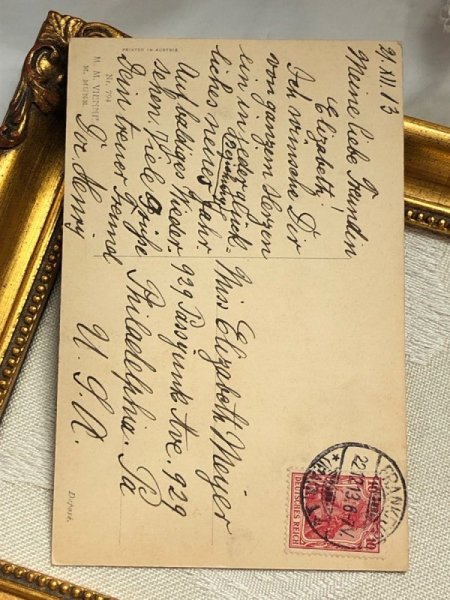 21.XII.13
Meine liebe Freundin
Elizabeth!
Ich wünsche Dir
von ganzem Herzen
ein in jeder Beziehung glück-
liches neues Jahr
Auf baldiges Wieder
sehen. Viele Grüße
Dein treuer Freund
Dr. Henry
Miss Elizabeth Meyer
929 Passyunk Ave. 929
Philadelphia. Pa
U. S. A.
PRINTED IN AUSTRIA
Nr. 794
M. M. VIENNE
M. MUNK.
Déposé.
22.12.13.6-7V.
DEUTSCHES REICH
10